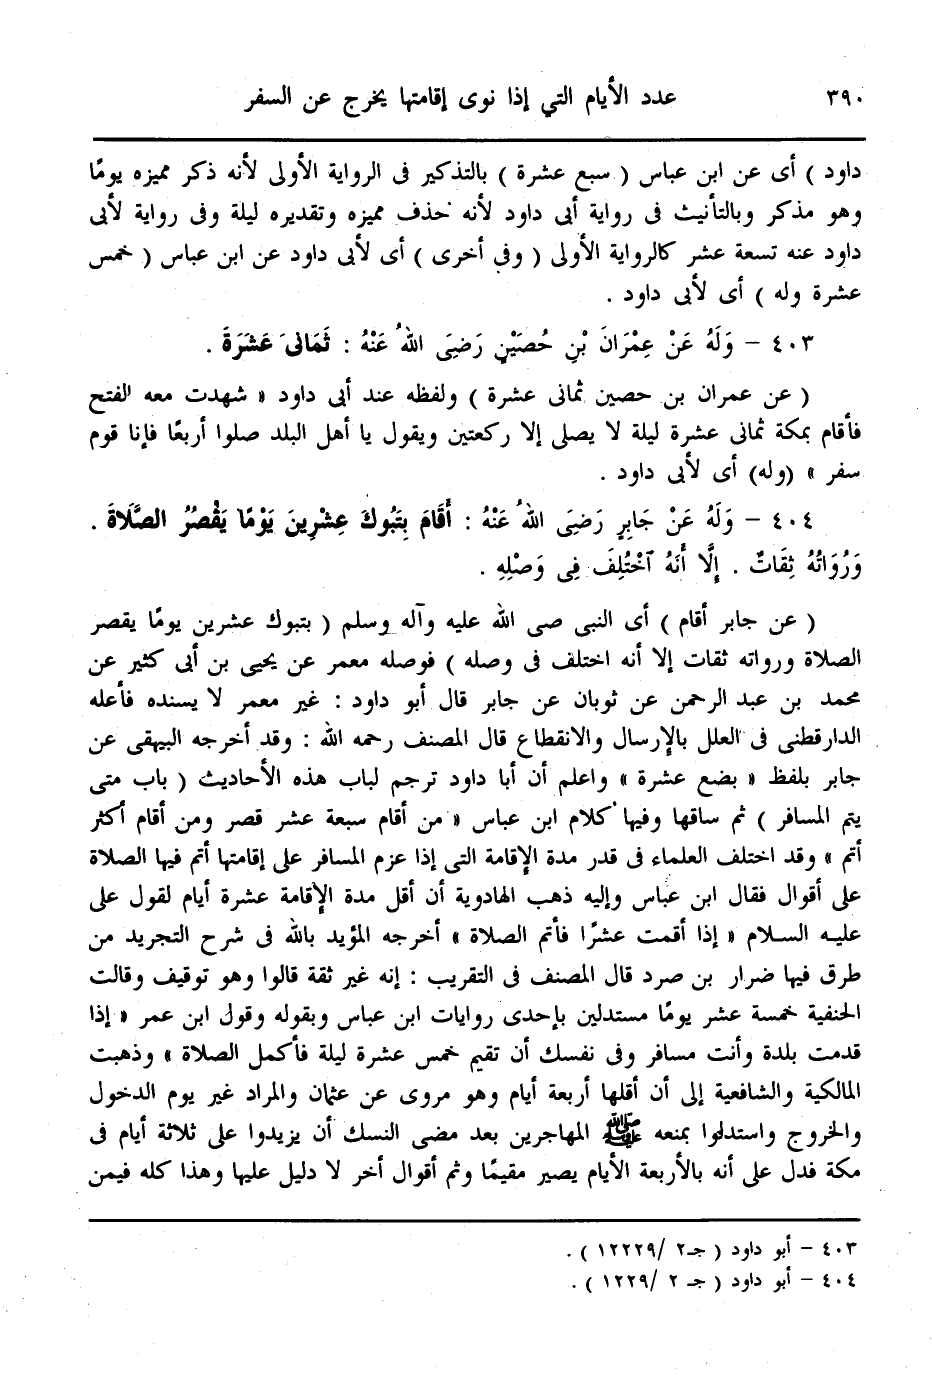 ٣٩٠ عدد الأيام التي إذا نوى إقامتها يخرج عن السفر
داود ) أى عن ابن عباس ( سبع عشرة ) بالتذكير فى الرواية الأولى لأنه ذكر مميزه يومًا
وهو مذكر وبالتأنيث فى رواية أبى داود لأنه حذف مميزه وتقديره ليلة وفى رواية لأبى
داود عنه تسعة عشر كالرواية الأولى ( وفى أخرى ) أى لأبى داود عن ابن عباس ( خمس
عشرة وله ) أى لأبى داود .
٤٠٣ – وَلَهُ عَنْ عِمْرَانَ بْنِ حُصَيْنٍ رَضِىَ اللهُ عَنْهُ : ثَمَانىَ عَشَرَةَ .
( عن عمران بن حصين ثمانى عشرة ) ولفظه عند أبى داود « شهدت معه الفتح
فأقام بمكة ثمانى عشرة ليلة لا يصلى إلا ركعتين ويقول يا أهل البلد صلوا أربعًا فإنا قوم
سفر » (وله) أى لأبى داود .
٤٠٤ – وَلَهُ عَنْ جَابِرٍ رَضِىَ اللهُ عَنْهُ : أَقَامَ بِتَبُوكَ عِشْرِينَ يَوْمًا يَقْصُرُ الصَّلَاةَ .
وَرُوَاتُهُ ثِقَاتٌ . إِلَّا أَنَهُ اخْتُلِفَ فِى وَصْلِهِ .
( عن جابر أقام ) أى النبى صى الله عليه وآله وسلم ( بتبوك عشرين يومًا يقصر
الصلاة ورواته ثقات إلا أنه اختلف فى وصله ) فوصله معمر عن يحيى بن أبى كثير عن
محمد بن عبد الرحمن عن ثوبان عن جابر قال أبو داود : غير معمر لا يسنده فأعله
الدارقطنى فى العلل بالإرسال والانقطاع قال المصنف رحمه الله : وقد أخرجه البيهقى عن
جابر بلفظ « بضع عشرة » واعلم أن أبا داود ترجم لباب هذه الأحاديث ( باب متى
يتم المسافر ) ثم ساقها وفيها كلام ابن عباس « من أقام سبعة عشر قصر ومن أقام أكثر
أتم » وقد اختلف العلماء فى قدر مدة الإقامة التى إذا عزم المسافر على إقامتها أتم فيها الصلاة
على أقوال فقال ابن عباس وإليه ذهب الهادوية أن أقل مدة الإقامة عشرة أيام لقول على
عليه السلام « إذا أقمت عشرًا فأتم الصلاة » أخرجه المؤيد بالله فى شرح التجريد من
طرق فيها ضرار بن صرد قال المصنف فى التقريب : إنه غير ثقة قالوا وهو توقيف وقالت
الحنفية خمسة عشر يومًا مستدلين بإحدى روايات ابن عباس وبقوله وقول ابن عمر « إذا
قدمت بلدة وأنت مسافر وفى نفسك أن تقيم خمس عشرة ليلة فأكمل الصلاة » وذهبت
المالكية والشافعية إلى أن أقلها أربعة أيام وهو مروى عن عثمان والمراد غير يوم الدخول
والخروج واستدلوا بمنعه ﷺ المهاجرين بعد مضى النسك أن يزيدوا على ثلاثة أيام فى
مكة فدل على أنه بالأربعة الأيام يصير مقيمًا وثم أقوال أخر لا دليل عليها وهذا كله فيمن
٤٠٣ – أبو داود ( جـ٢ /١٢٢٢٩ ) .
٤٠٤ – أبو داود ( جـ ٢ /١٢٢٩ ) .